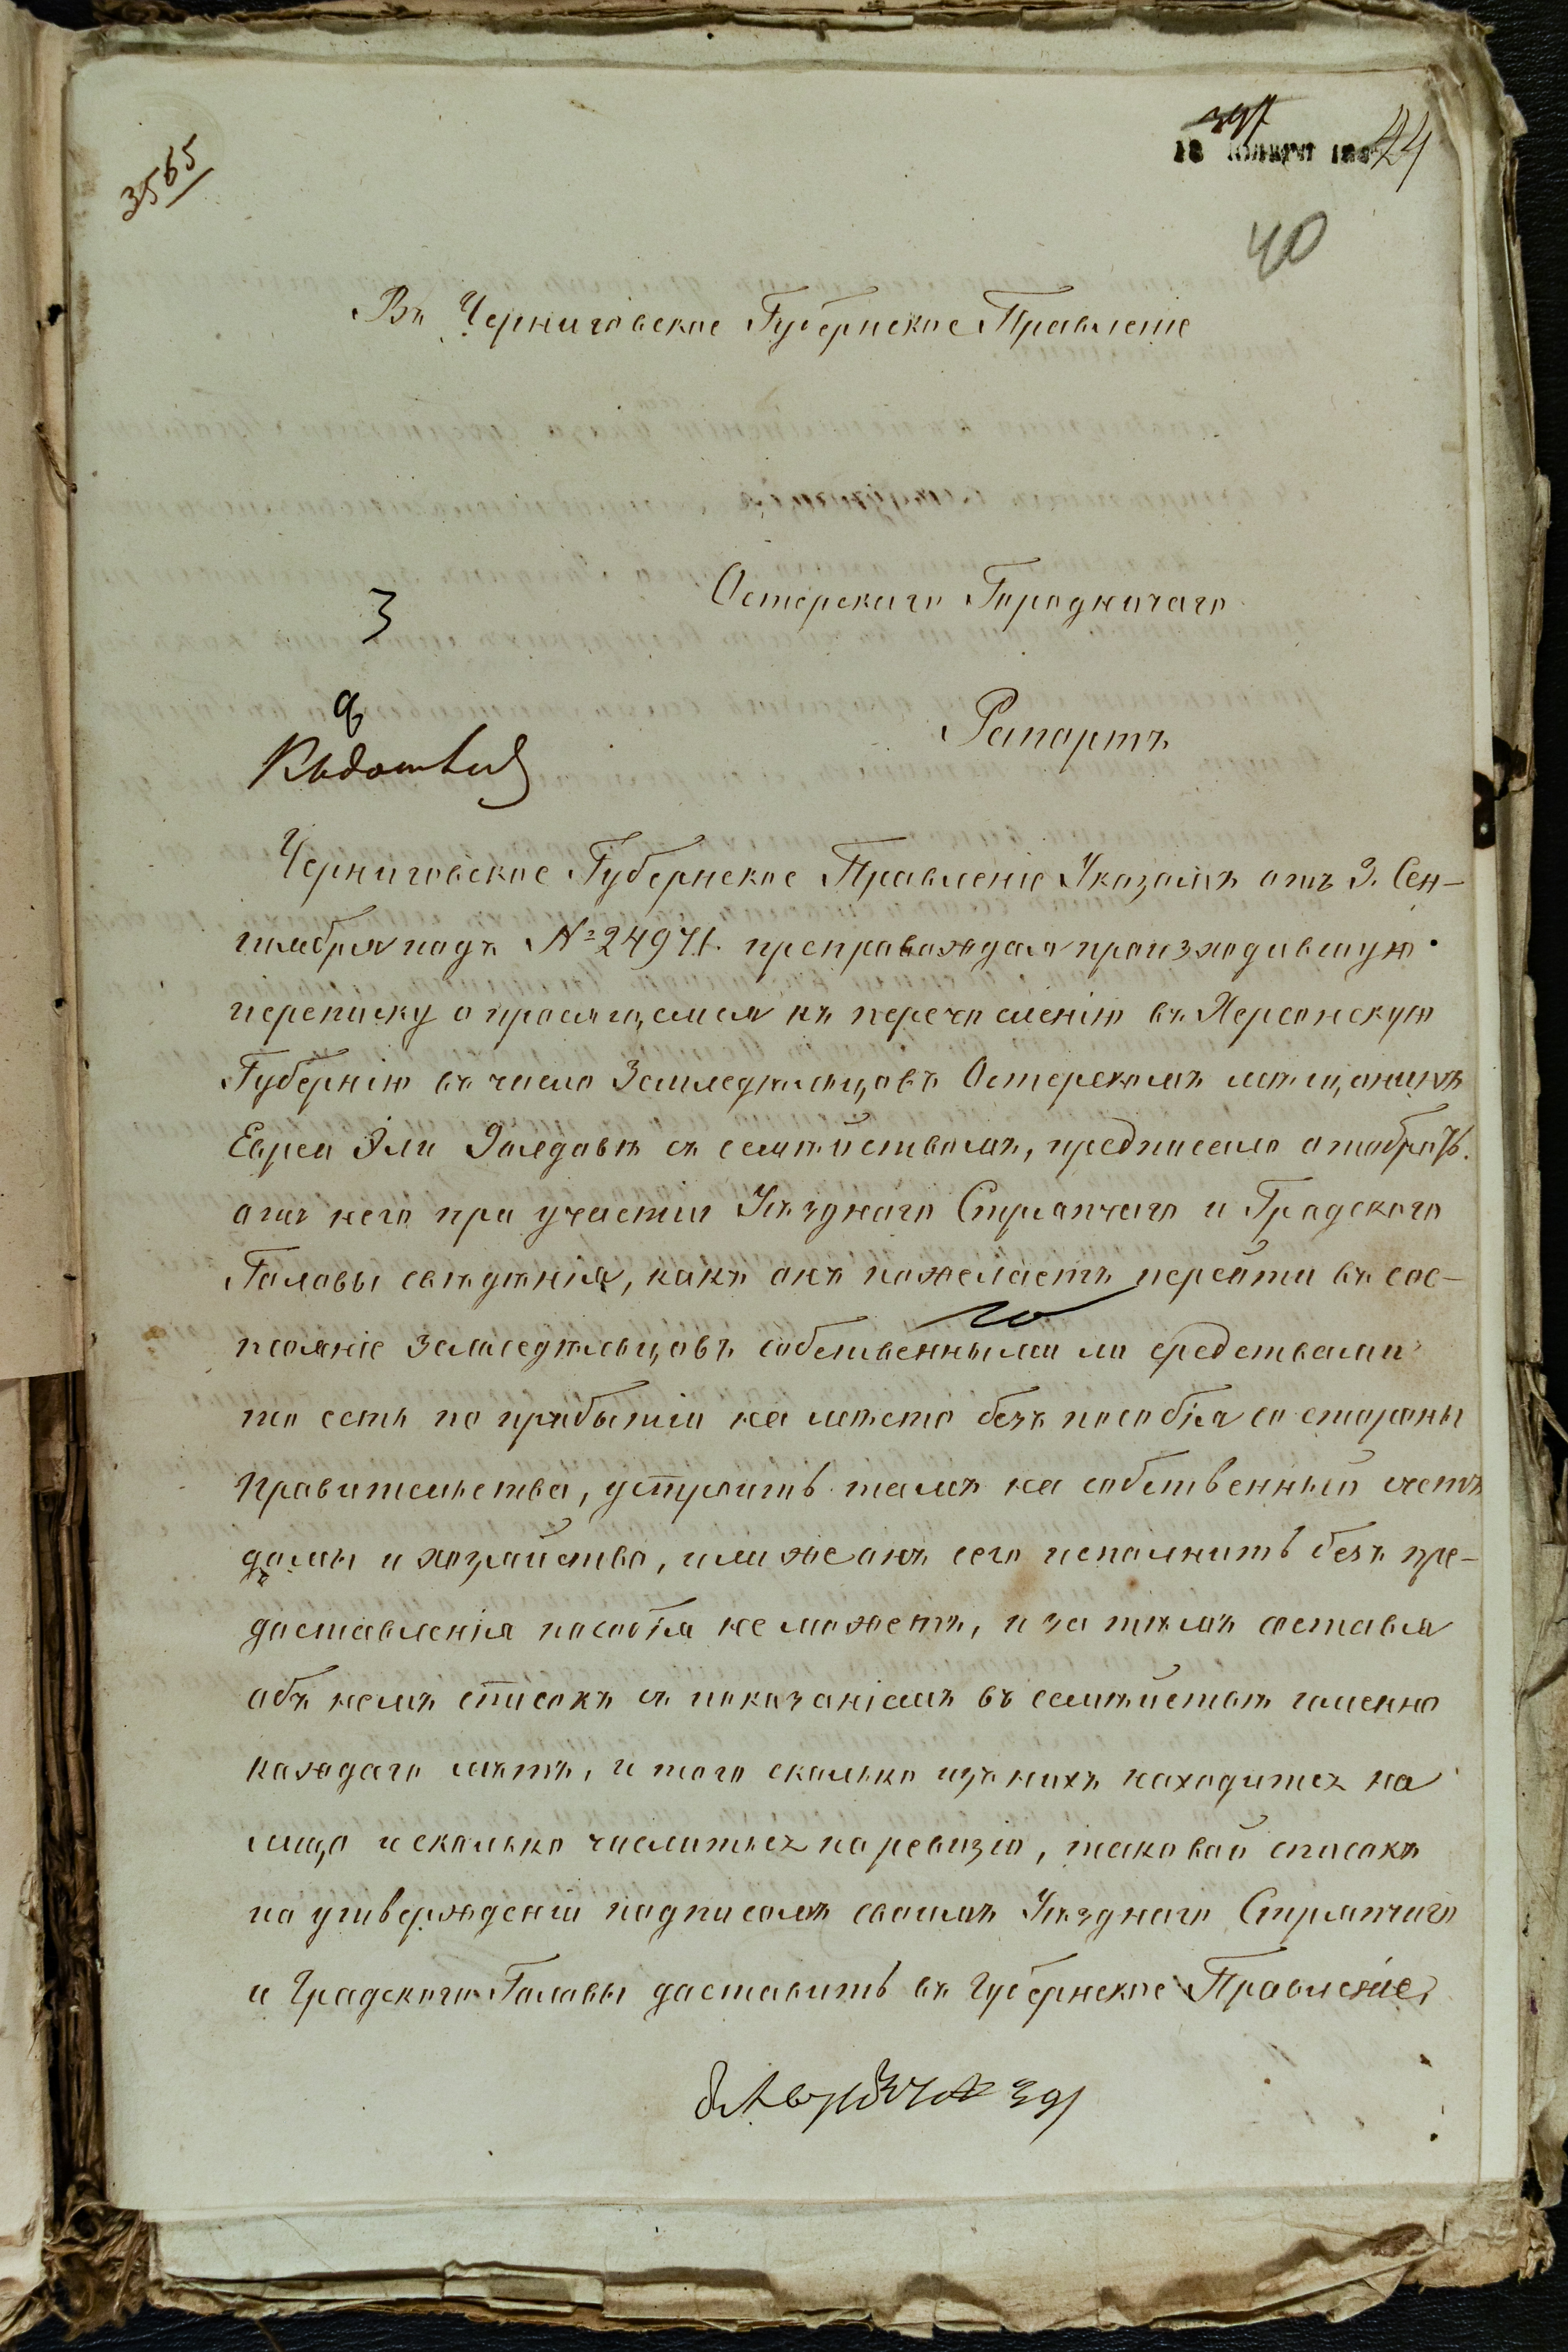 3565
18 января 18
44
40
Въ Черниговское Губернское Правленіе
3
Остерскаго Городничаго
Рапортъ
Черниговское Губернское Правленіе Указомъ отъ 3. Сен-
тября подъ № 24971. препровождая произходившую
переписку о просящемся къ перечисленію въ Херсонскую
Губернію въ число Земледѣльцовъ Остерскомъ мѣщанинѣ
Евреи Эли съ семѣйствомъ, предписало отобрать
отъ него при участіи Уѣзднаго Стряпчаго и Градскаго
Головы свѣдѣнія, какъ онъ пожелаетъ перейти въ сос-
тояніе земледѣльцовъ собственными ли средствами
то есть по прибытіи на мѣсто безъ пособія со стороны
правительства, устроить тамъ на собственный счетъ
домы и хозяйство, или же онъ сего исполнить безъ пре-
доставленія пособія не можетъ, и за тѣмъ составя
объ немъ списокъ съ показаніемъ въ семѣйствѣ именно
каждаго лѣтъ, и того сколько изъ нихъ находится на
лицо и сколько числится по ревизіи, таковой списокъ
по утвержденіи подписомъ своимъ Уѣзднаго Стряпчаго
и Градскаго Головы доставить въ Губернское Правленіе,